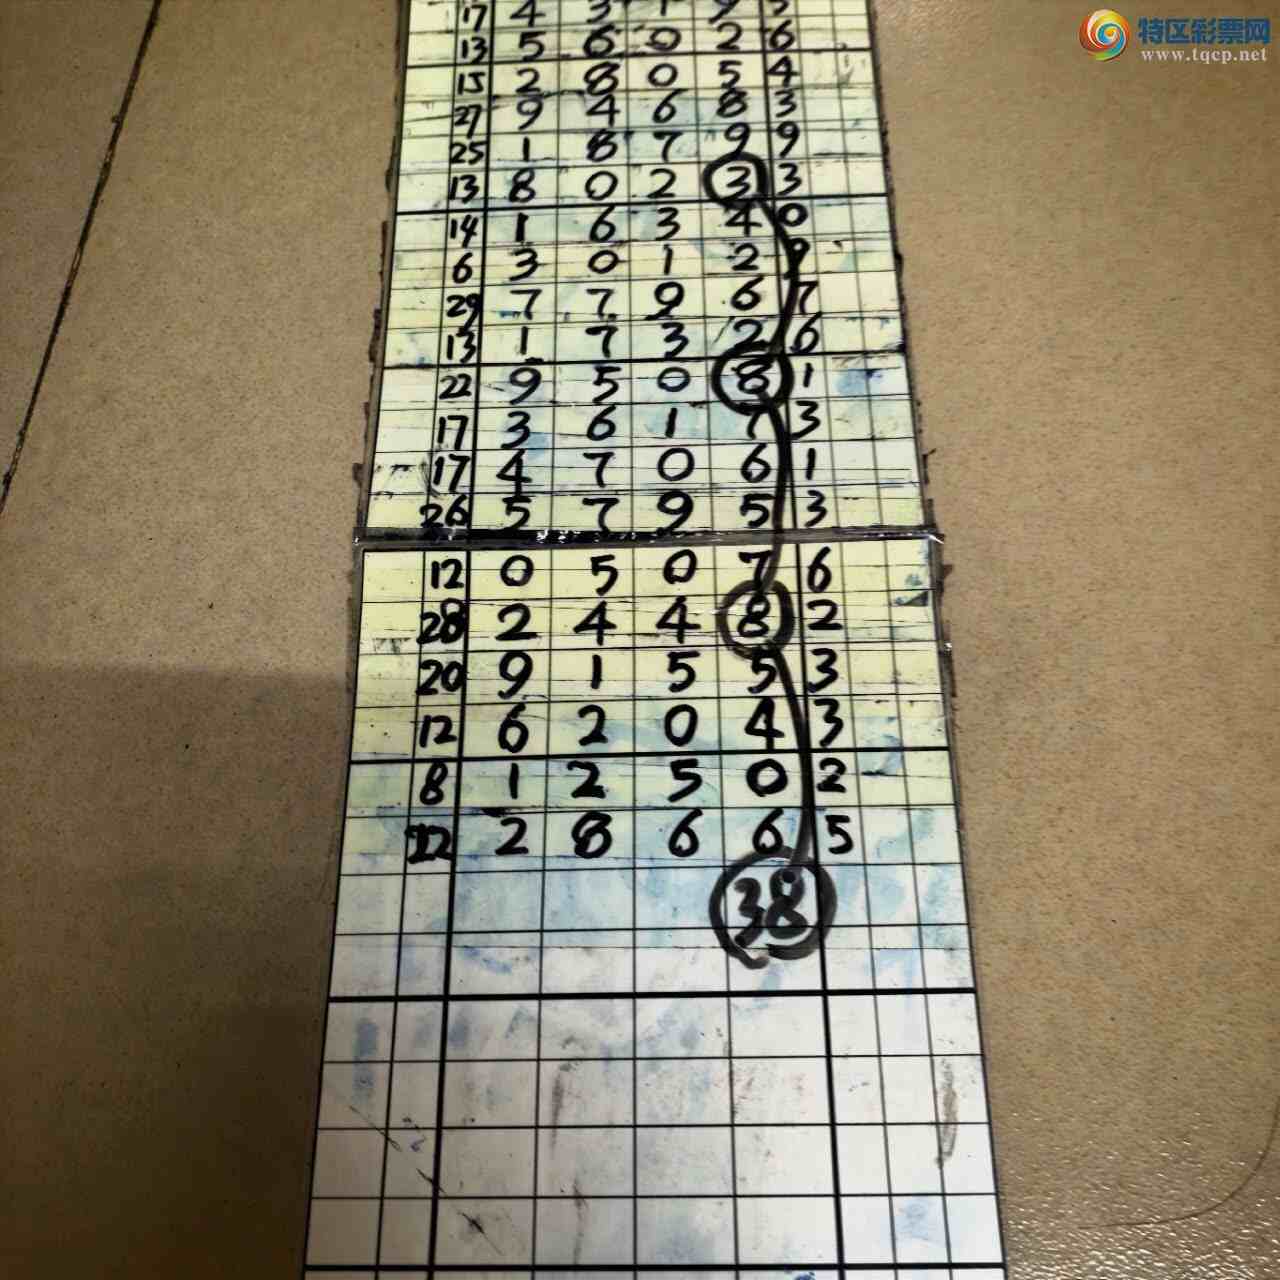 特区彩票网
www.tqcp.net
17 4 3 1 9 5
13 5 6 0 2 6
15 2 8 0 5 4
27 9 4 6 8 3
25 1 8 7 9 9
13 8 0 2 3 3
14 1 6 3 4 0
6 3 0 1 2 9
29 7 7 9 6 7
13 1 7 3 2 6
22 9 5 0 8 1
17 3 6 1 7 3
17 4 7 0 6 1
26 5 7 9 5 3
12 0 5 0 7 6
28 2 4 4 8 2
20 9 1 5 5 3
12 6 2 0 4 3
8 1 2 5 0 2
22 2 8 6 6 5
38